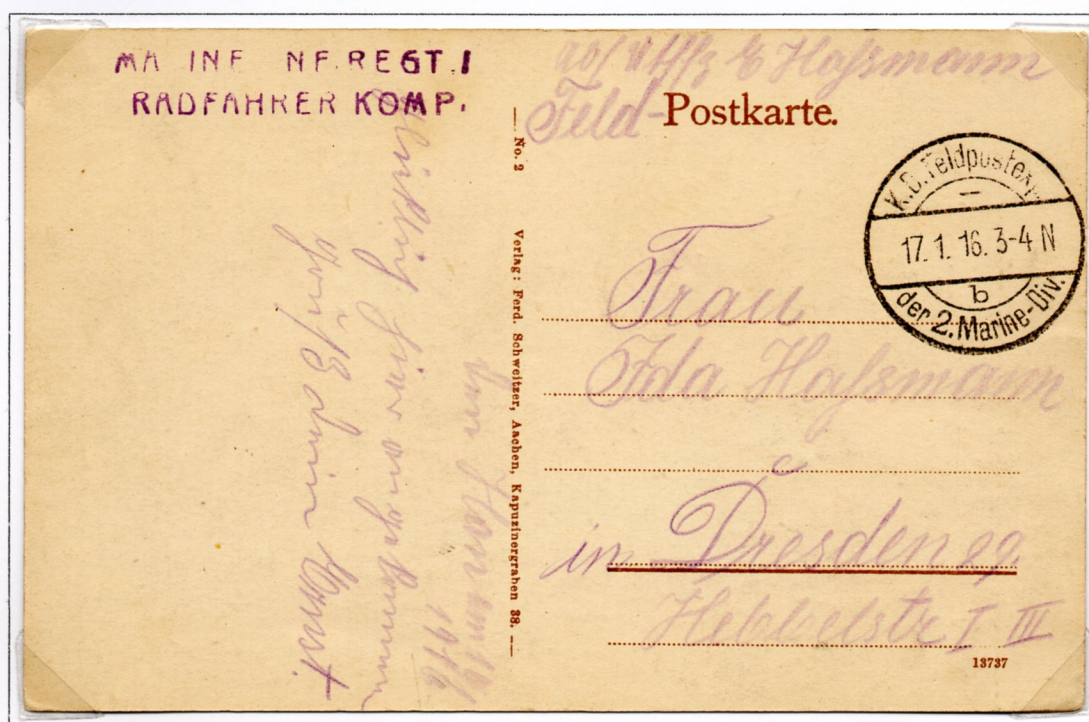 MA INE NF.REGT.I
RADFAHRER KOMP.
Hofsmann
Feld-Postkarte.
K.D.Feldpostexp.
17.1.16.3-4 N
b
der 2.Marine-Div.
Frau
Ida Hofsmann
in Dresden 29.
Hebbelstr I III
13737
No. 2
Verlag: Ferd. Schweitzer, Aachen, Kapuzinergraben 38.
1916
glücklich hier angekommen
Gruß dein Ernst